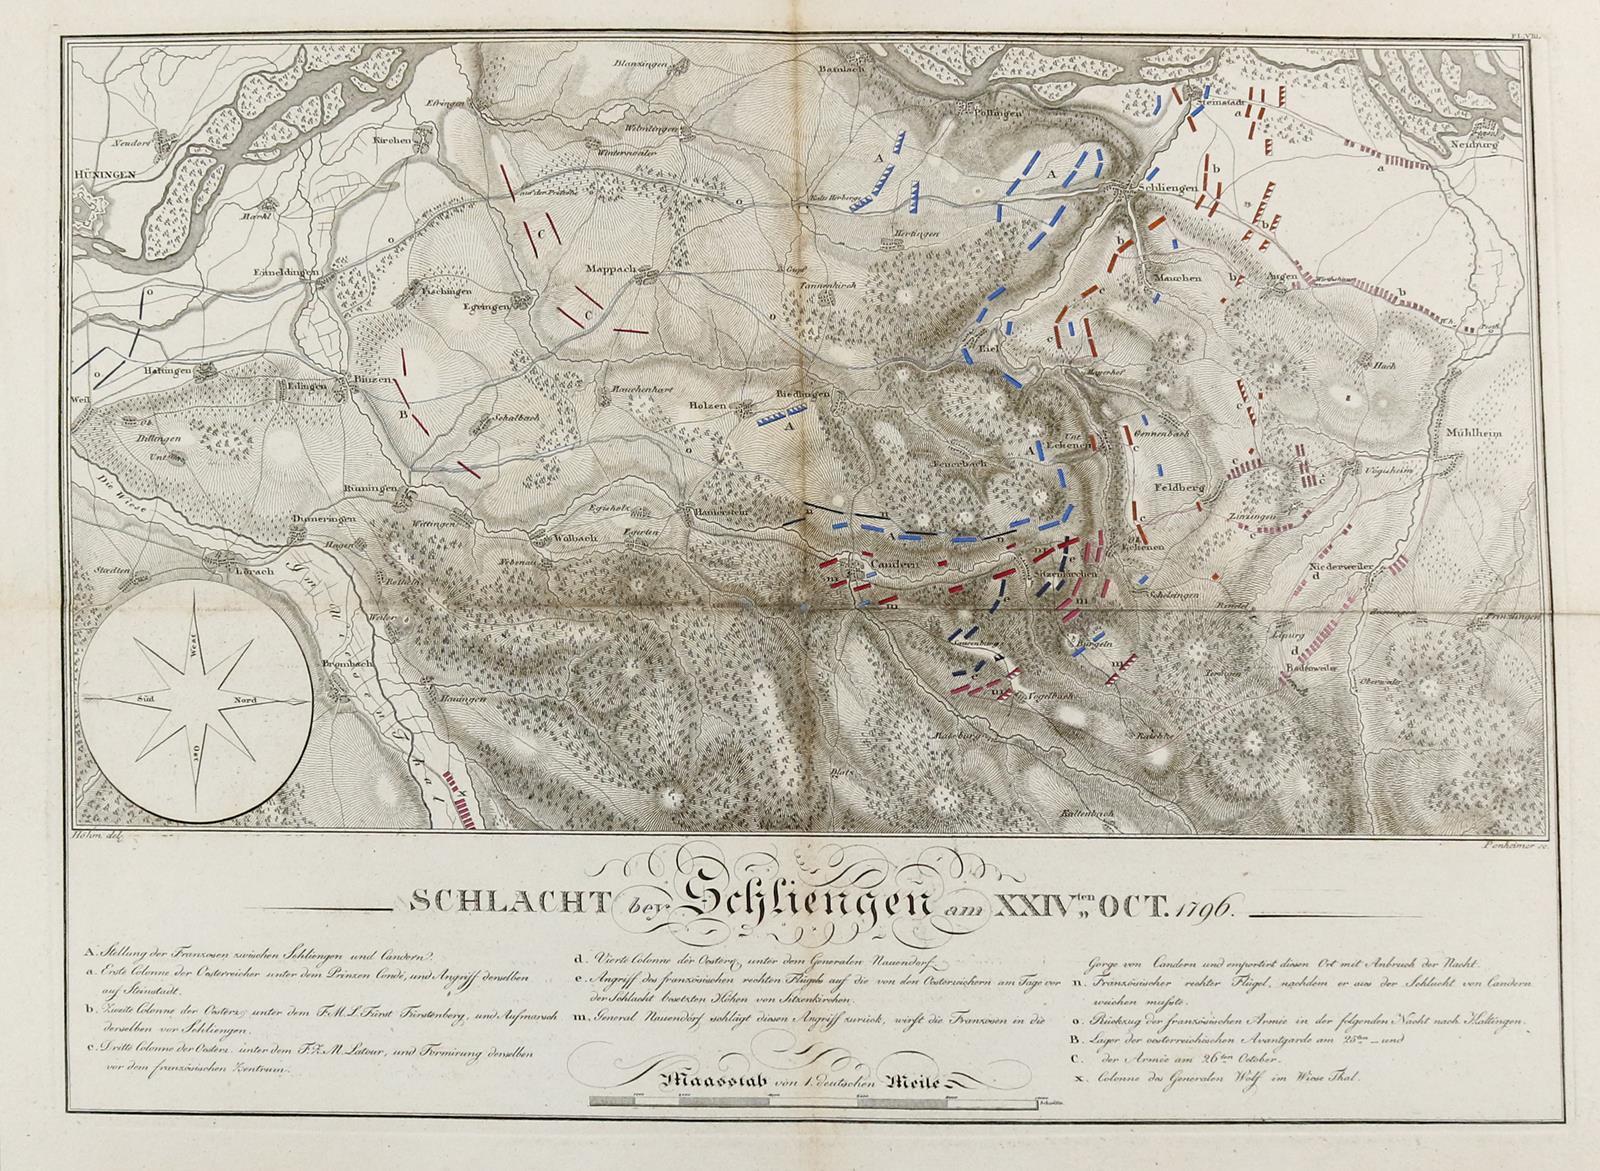 PL. VIII.
Blanzingen
Bamlach
Steinstadt
Efringen
Pollingen
Neudorf
Kirchen
Wintersweiler
Neuburg
HÜNINGEN
A
A
a
a
Schliengen
b
Kalte Herberg
Markt
Hertingen
C
b
b
Eimeldingen
Mappach
Mauchen
b
Augen
b
Fischingen
Egringen
Tannenkirch
C
c
o
o
o
o
Haltingen
Binzen
Riel
Hach
Weil
Edlingen
Rauchenhart
Holzen
Riedlingen
B
Schalbach
A
c
Mühlheim
Ob.
Dillingen
Unt.
Gennenbach
Unt.
Eckenen
A
c
Feuerbach
Vögisheim
Feldberg
Rümingen
Hamerstein
Zinzingen
Die Wiese
Dumeringen
Wittingen
Egisholz
Egerten
Wolbach
n
A
n
Eckenen
Hagen
Nebenau
Candern
Sitzenkirchen
Niederweiler
d
Stædten
Lörach
Rotheln
m
e
m
Schelsingen
Weiler
Bürgeln
d
Badenweiler
Brombach
West
Süd
Nord
Ost
Hauingen
m
Vogelbach
Oberweiler
Malsburg
Wiesen Thal
x
Kaltenbach
Höhm. del.
Ponheimer sc.
SCHLACHT bey Schliengen am XXIVten OCT. 1796.
A. Stellung der Franzosen zwischen Schliengen und Candern.
a. Erste Colonne der Oesterreicher unter dem Prinzen Condé, und Angriff derselben
auf Steinstadt.
b. Zweite Colonne der Oesterr. unter dem F.M.L. Fürst Fürstenberg, und Aufmarsch
derselben vor Schliengen.
c. Dritte Colonne der Oesterr. unter dem F.Z.M. Latour, und Formirung derselben
vor dem französischen Zentrum.
d. Vierte Colonne der Oesterr. unter dem Generalen Nauendorf.
e. Angriff des französischen rechten Flügels auf die von den Oesterreichern am Tage vor
der Schlacht besetzten Höhen von Sitzenkirchen.
m. General Nauendorf schlägt diesen Angriff zurück, wirft die Franzosen in die
Gorge von Candern und emportirt diesen Ort mit Anbruch der Nacht.
n. Französischer rechter Flügel, nachdem er aus der Schlucht von Candern
weichen musste.
o. Rückzug der französischen Armee in der folgenden Nacht nach Haltingen.
B. Lager der oesterreichischen Avantgarde am 25ten und
C. der Armee am 26ten October.
x. Colonne des Generalen Wolf im Wiese Thal.
Maasstab von 1. deutschen Meile